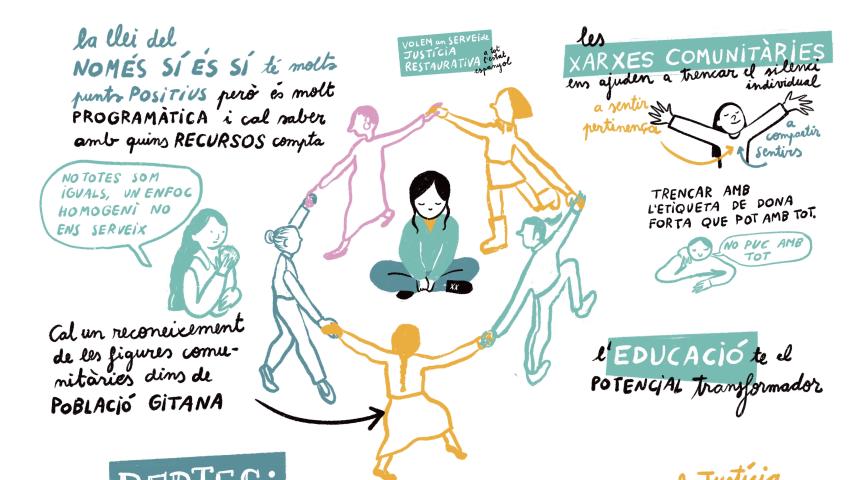 la llei del
NOMÉS SÍ ÉS SÍ té molts
punts POSITIUS però és molt
PROGRAMÀTICA i cal saber
amb quins RECURSOS compta
VOLEM un SERVEI de
JUSTÍCIA
RESTAURATIVA a tot
l'estat
espanyol
les
XARXES COMUNITÀRIES
ens ajuden a trencar el silenci
individual
a sentir
pertinença
a
compartir
sentirs
NO TOTES SOM
IGUALS, UN ENFOC
HOMOGENI NO
ENS SERVEIX
TRENCAR AMB
L'ETIQUETA DE DONA
FORTA QUE POT AMB TOT.
NO PUC AMB
TOT
Cal un reconeixement
de les figures comu-
nitàries dins de
POBLACIÓ GITANA
l'EDUCACIÓ te el
POTENCIAL transformador
REPTES:
la Justícia